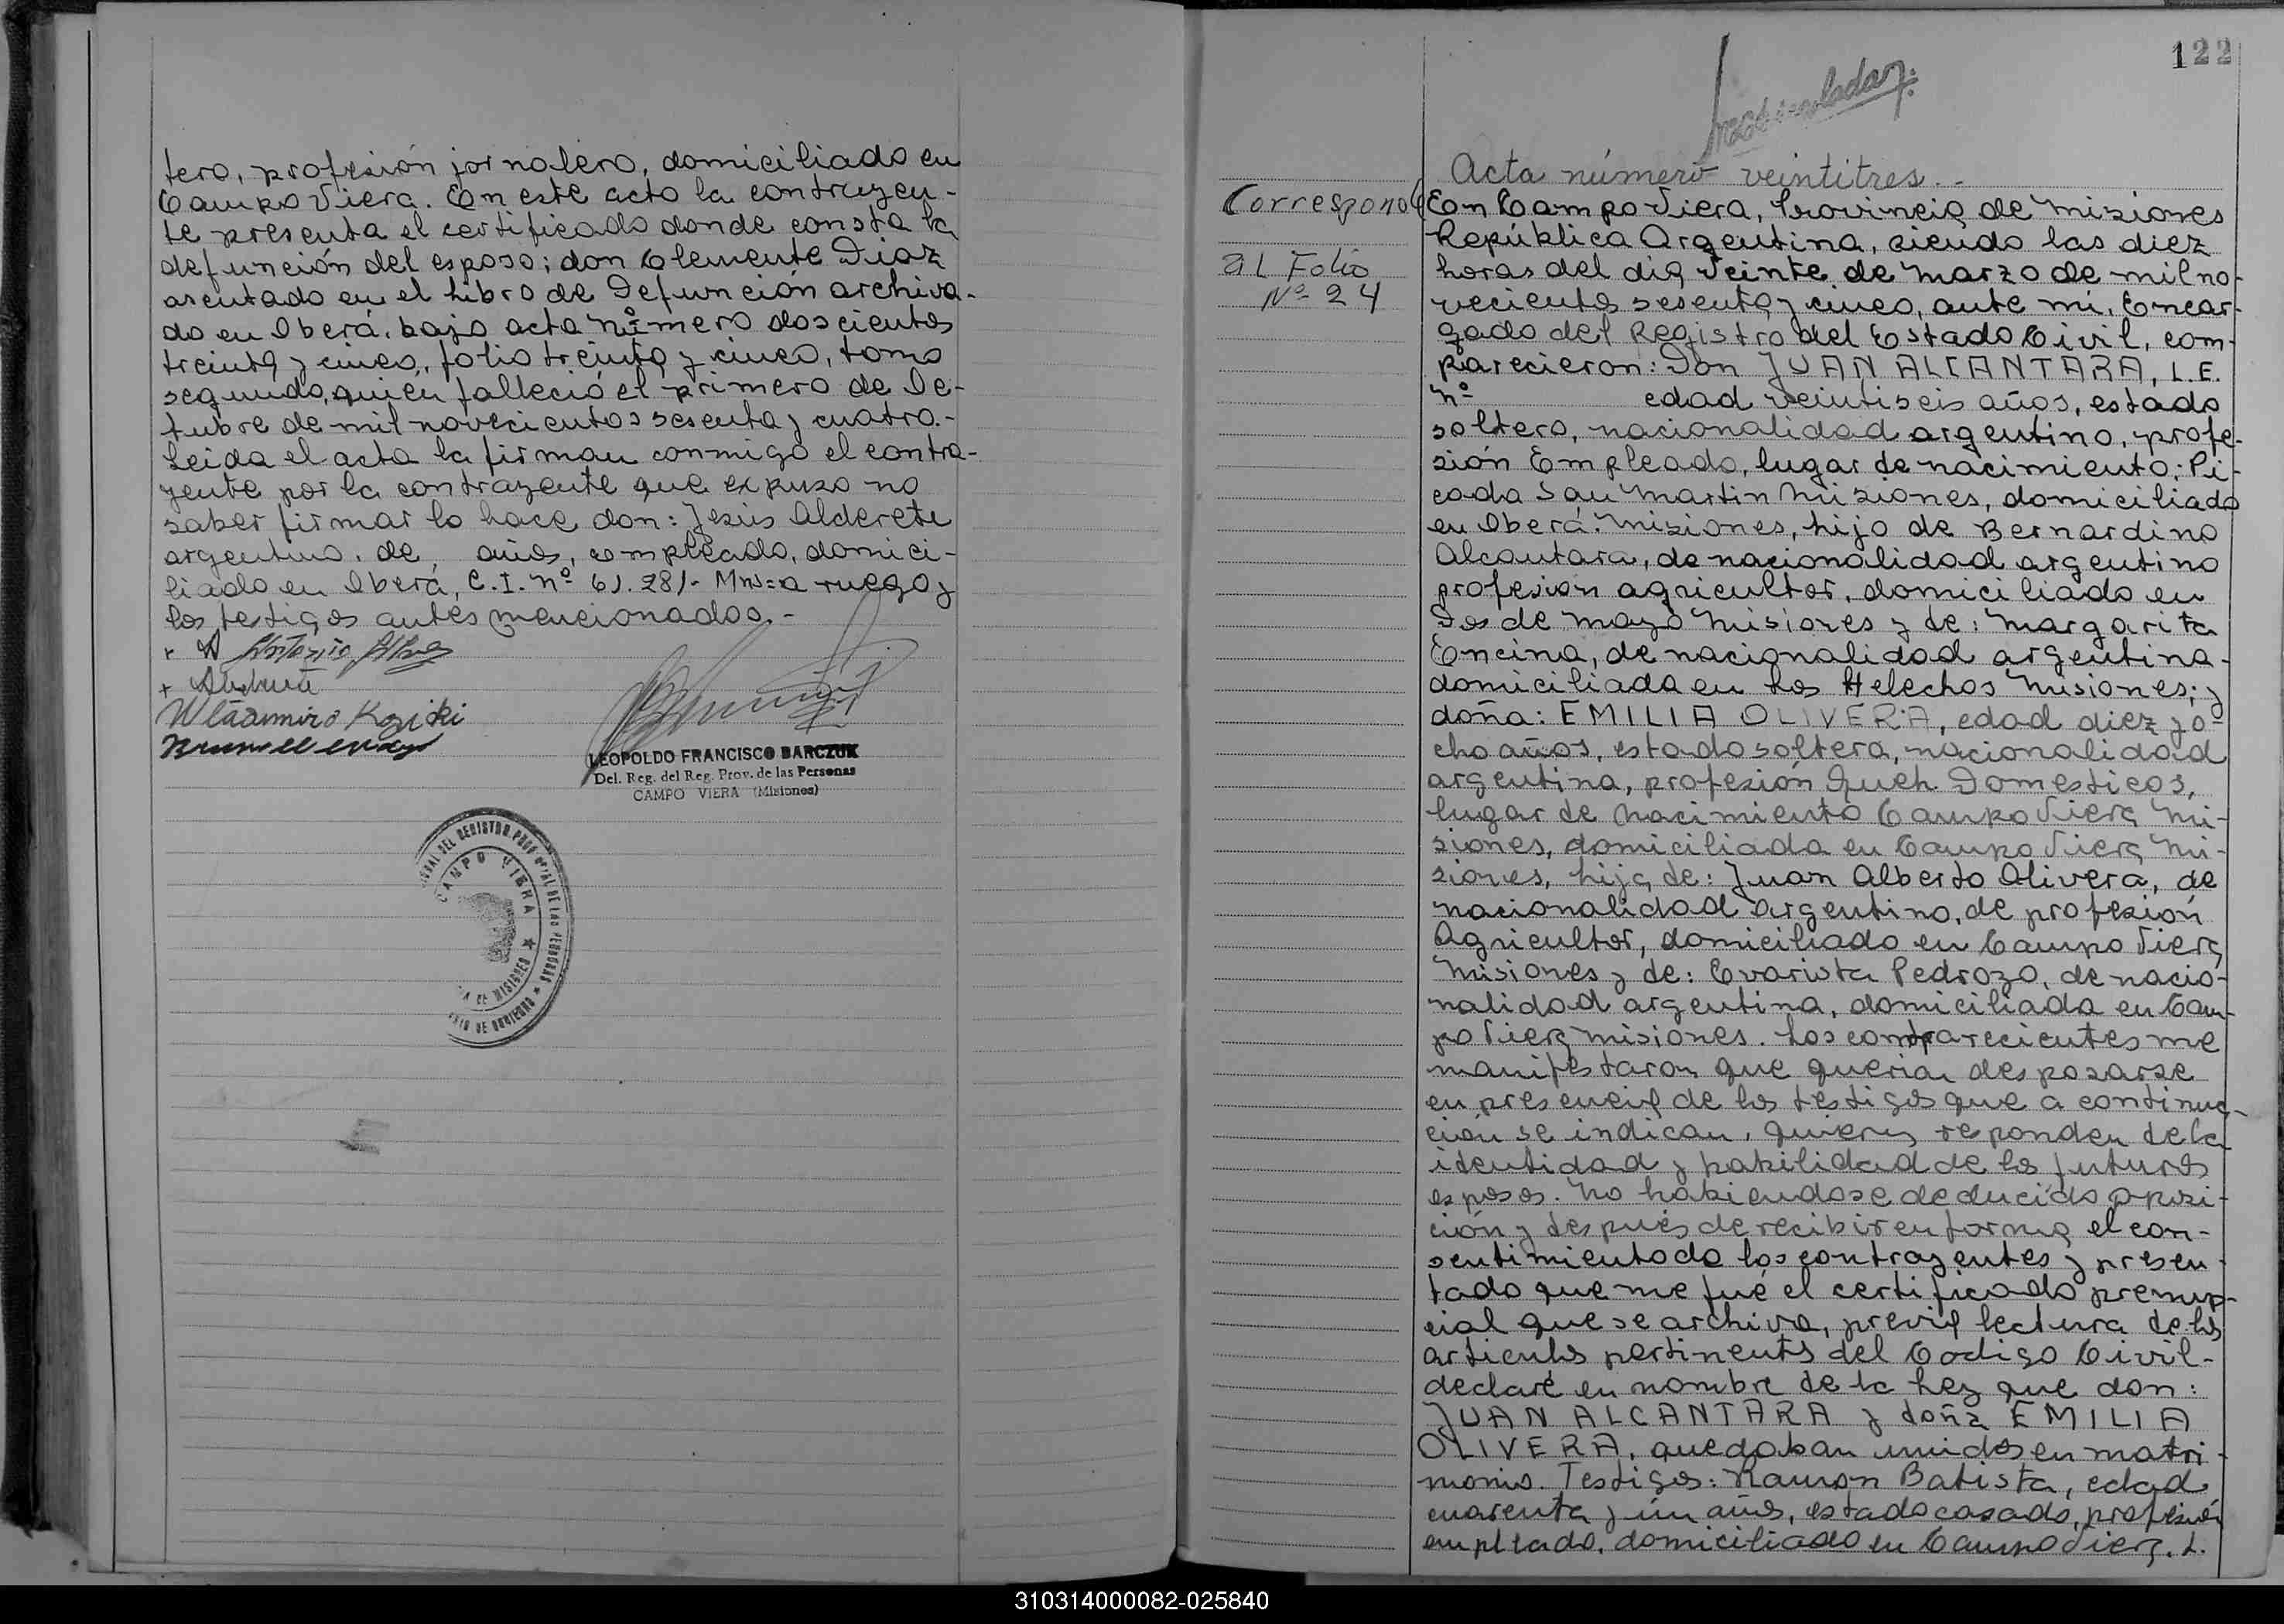 tero, profesión jornalero, domiciliado en
Campo Viera. En este acto la contrayen-
te presenta el certificado donde consta la
defunción del esposo; don Clemente Diaz
asentado en el Libro de Defunción archiva-
do en Oberá, bajo acta número doscientos
treinta y cinco, folio treinta y cinco, tomo
segundo, quien falleció el primero de Oc-
tubre de mil novecientos sesenta y cuatro.-
Leida el acta la firman conmigo el contra-
yente por la contrayente que expuso no
saber firmar lo hace don: Jesús Alderete
argentino, de años, empleado, domici-
liado en Oberá, C.I. nº 61.281- Mns=a ruego y
los testigos antes mencionados.-
Wladimiro Koziki
LEOPOLDO FRANCISCO BARCZUK
Del. Reg. del Reg. Prov. de las Personas
CAMPO VIERA (Misiones)
CAMPO VIERA
122
Acta número veintitres.-
Corresponde
al Folio
Nº 24
En Campo Viera, Provincia de Misiones
República Argentina, siendo las diez
horas del dia veinte de Marzo de mil no-
vecientos sesenta y cinco, ante mi, Encar-
gado del Registro del Estado Civil, com-
parecieron: Don JUAN ALCANTARA, L.E.
nº edad veintiseis años, estado
soltero, nacionalidad argentino, profe-
sión Empleado, lugar de nacimiento: Pi-
cada San Martin Misiones, domiciliado
en Oberá Misiones, hijo de Bernardino
Alcantara, de nacionalidad argentino
profesion agricultor, domiciliado en
Dos de Mayo Misiones y de: Margarita
Encina, de nacionalidad argentina-
domiciliada en Los Helechos Misiones; y
doña: EMILIA OLIVERA, edad diez y o-
cho años, estado soltera, nacionalidad
argentina, profesión Queh. Domesticos,
lugar de nacimiento Campo Viera Mi-
siones, domiciliada en Campo Viera Mi-
siones, hija de: Juan Alberto Olivera, de
nacionalidad argentino, de profesión
Agricultor, domiciliado en Campo Viera
Misiones y de: Evarista Pedrozo, de nacio-
nalidad argentina, domiciliada en Cam-
po Viera Misiones. Los comparecientes me
manifestaron que querian desposarse
en presencia de los testigos que a continua-
ción se indican, quienes reponden de la
identidad y habilidad de los futuros
esposos. No habiendose deducido oposi-
ción y después de recibir en forma el con-
sentimiento de los contrayentes y presen-
tado que me fué el certificado prenup-
cial que se archiva, previa lectura de los
articulos pertinents del Codigo Civil-
declaré en nombre de la Ley que don:
JUAN ALCANTARA y doña EMILIA
OLIVERA, quedaban unidos en matri-
monio. Testigos: Ramon Batista, edad
cuarenta y un años, estado casado, profesión
empleado, domiciliado en Campo Viera. L.
310314000082-025840